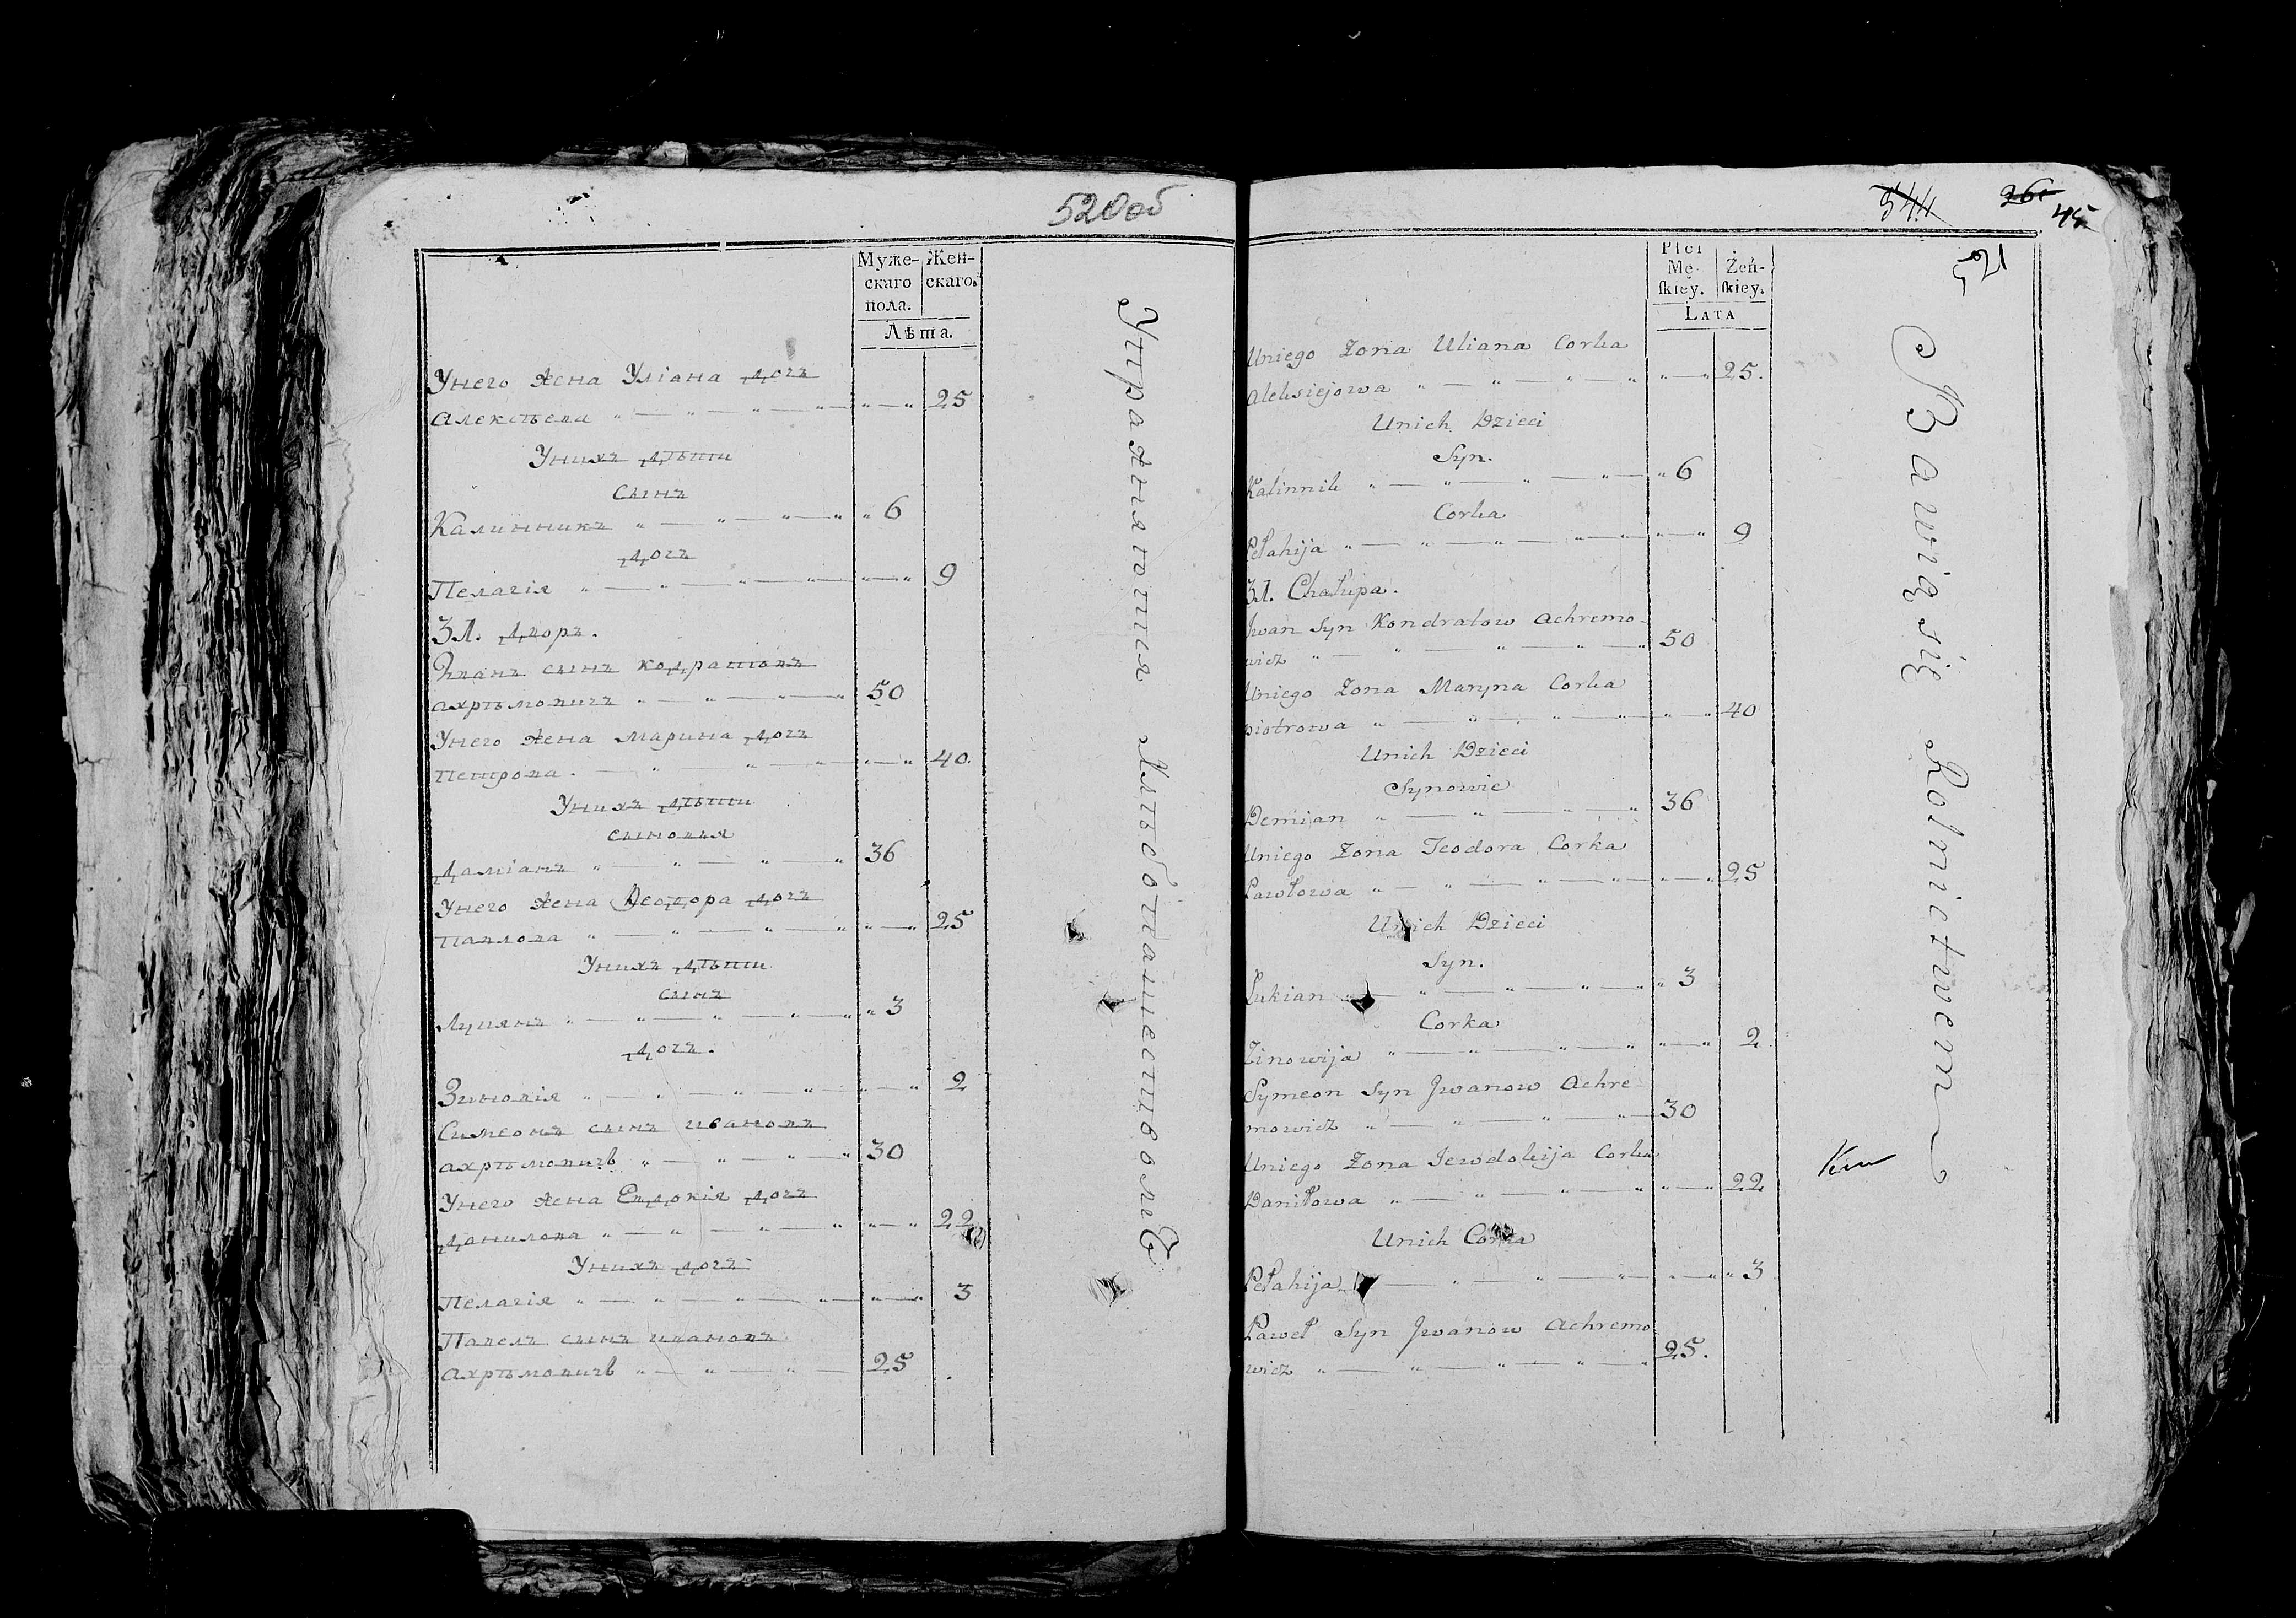 520об
Муже-
скаго
пола.
Жен-
скаго.
Лѣта.
Унего жена Уліана дочь
Алексѣева 25
Унихъ дѣти
Сынъ
Калинникъ 6
дочь
Пелагія 9
31. Дворъ.
Иванъ сынъ кодратовъ
ахрѣмовичъ 50
Унего жена Марина дочь
Петрова. 40.
Унихъ дѣти
сыновья
Даміанъ 36
Унего жена Ѳеодора дочь
Павлова 25
Унихъ дѣти
сынъ
Лукянъ 3
дочь.
Зиновія 2
Симеонъ сынъ ивановъ
ахрѣмовичъ 30
Унего жена Евдокія дочь
Данилова 22
Унихъ дочь
Пелагія 3
Павелъ сынъ ивановъ
ахрѣмовичъ 25
Упражняютися Хлѣбопашествомъ
544 26 45
521
Płci
Mę-
ſkiey.
Żeń-
ſkiey.
LATA
Uniego Zona Uliana Corka
Aleksiejowa 25.
Unich Dzieci
Syn.
Kalinnik 6
Corka
Pełahija 9
31. Chałupa.
Jwan Syn Kondratow Achremo-
wicz 50
Uniego Zona Maryna Corka
piotrowa 40
Unich Dzieci
Synowie
Demian 36
Uniego Zona Teodora Corka
Pawłowa 25
Unich Dzieci
Syn.
Łukian 3
Corka
Zinowija 2
Symeon Syn Jwanow Achre
mowicz 30
Uniego Zona Jewdokija Corka
Daniłowa 22
Unich Corka
Pełahija 3
Paweł Syn Jwanow Achremo
wicz 25.
Bawią się Rolnictwem